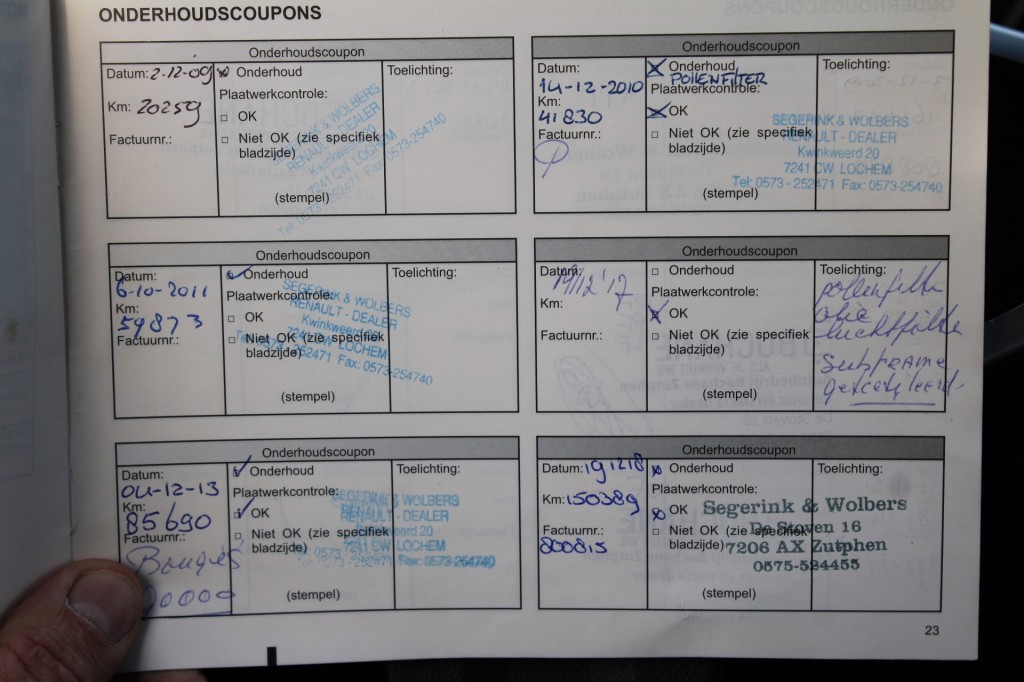 ONDERHOUDSCOUPONS
Onderhoudscoupon
Datum: 2-12-09
Onderhoud
Toelichting:
Km: 20259
Plaatwerkcontrole:
OK
Factuurnr.:
Niet OK (zie specifiek
bladzijde)
(stempel)
SEGERINK & WOLBERS
RENAULT - DEALER
Kwinkweerd 20
7241 CW LOCHEM
Tel: 0573-252471 Fax: 0573-254740
Onderhoudscoupon
Datum:
14-12-2010
Onderhoud
POLLENFILTER
Toelichting:
Km:
41830
Plaatwerkcontrole:
OK
Factuurnr.:
Niet OK (zie specifiek
bladzijde)
(stempel)
SEGERINK & WOLBERS
RENAULT - DEALER
Kwinkweerd 20
7241 CW LOCHEM
Tel: 0573 - 252471 Fax: 0573-254740
Onderhoudscoupon
Datum:
6-10-2011
Onderhoud
Toelichting:
Km:
59873
Plaatwerkcontrole:
OK
Factuurnr.:
Niet OK (zie specifiek
bladzijde)
(stempel)
SEGERINK & WOLBERS
RENAULT - DEALER
Kwinkweerd 20
7241 CW LOCHEM
252471 Fax: 0573-254740
Onderhoudscoupon
Datum:
19/12'17
Onderhoud
Toelichting:
Km:
Plaatwerkcontrole:
OK
Factuurnr.:
Niet OK (zie specifiek
bladzijde)
(stempel)
pollenfilter
olie
luchtfilter
subframe
Onderhoudscoupon
Datum:
04-12-13
Onderhoud
Toelichting:
Km:
85690
Plaatwerkcontrole:
OK
Factuurnr.:
Bougies
Niet OK (zie specifiek
bladzijde)
(stempel)
SEGERINK & WOLBERS
RENAULT - DEALER
Kwinkweerd 20
7241 CW LOCHEM
0573-252471 Fax: 0573-254740
Onderhoudscoupon
Datum: 191218
Onderhoud
Toelichting:
Km: 150389
Plaatwerkcontrole:
OK
Factuurnr.:
800815
Niet OK (zie specifiek
bladzijde)
(stempel)
Segerink & Wolbers
De Stoven 16
7206 AX Zutphen
0575-524455
23